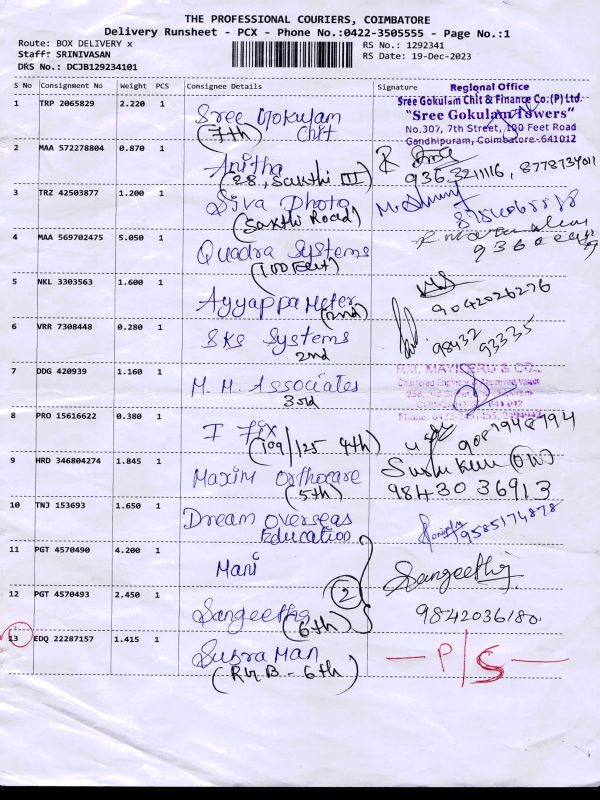 THE PROFESSIONAL COURIERS, COIMBATORE
Delivery Runsheet - PCX - Phone No.:0422-3505555 - Page No.:1
Route: BOX DELIVERY x
Staff: SRINIVASAN
DRS No.: DCJB129234101
RS No.: 1292341
RS Date: 19-Dec-2023
S No Consignment No Weight PCS Consignee Details Signature
1 TRP 2065829 2.220 1 Sree Gokulam
(7th) Chit
Regional Office
Sree Gokulam Chit & Finance Co.(P) Ltd.
"Sree Gokulam Towers"
No.307, 7th Street, 100 Feet Road
Gandhipuram, Coimbatore-641012
2 MAA 572278804 0.870 1 Anitha
(28, Sakthi III)
9363211116, 8778734011
3 TRZ 42503877 1.200 1 Siva Photo
(Sakthi Road)
4 MAA 569702475 5.050 1 Quadra Systems
(100 Feet)
5 NKL 3303563 1.600 1 Ayyappa Meter
(2nd)
9042026276
6 VRR 7308448 0.280 1 SKS Systems
2nd
98432 93335
7 DDG 420939 1.160 1 M. M. Associates
3rd
8 PRO 15616622 0.380 1 I Fix
(109/125 4th)
9087948794
9 HRD 346804274 1.845 1 Maxim Orthocare
(5th)
98430 36913
10 TNJ 153693 1.650 1 Dream overseas
Education
9585174878
11 PGT 4570490 4.200 1 Mani
Sangeetha
12 PGT 4570493 2.450 1 Sangeetha
(6th)
2
9842036180
13 EDQ 22287157 1.415 1 Subra Man
(RYB - 6th)
P/S